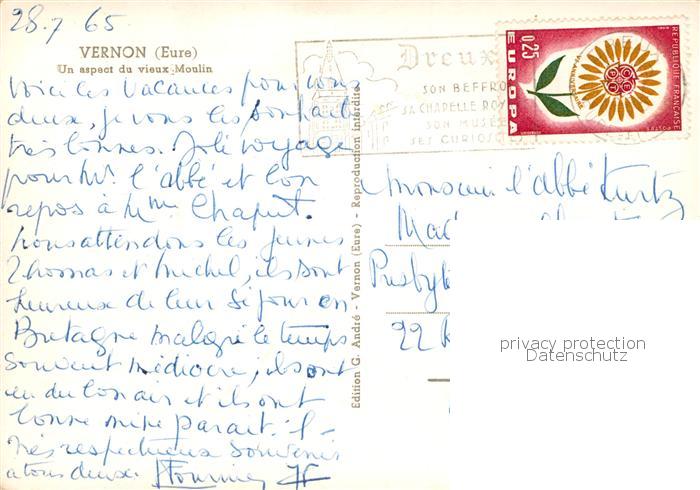 28.7 65
VERNON (Eure)
Un aspect du vieux Moulin
Voici les vacances pour vous
deux, je vous les souhaite
très bonnes. Joli voyage
pour Mr. l'abbé et bon
repos à Mme Chaput.
Nous attendons les jeunes
Thomas et Michel, ils sont
heureux de leur séjour en
Bretagne malgré le temps
souvent médiocre, ils ont
eu du bon air et ils ont
bonne mine paraît-il -
Très respectueux souvenirs
a tous deux. Fournier
Edition G. André - Vernon (Eure) - Reproduction interdite
Dreux
SON BEFFRO
SA CHAPELLE ROY
SON MUSÉE
SES CURIOS
0,25
EUROPA
REPUBLIQUE FRANÇAISE
POSTES
CEPT
Monsieur l'abbé Kurtz
Mad
Presbyt
22
privacy protection
Datenschutz